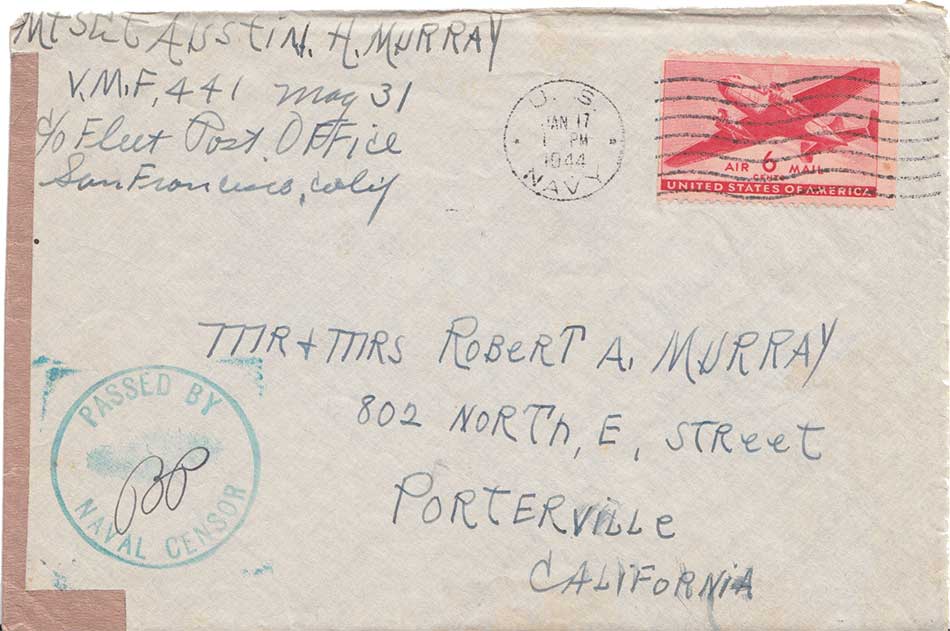 MTSGT AUSTIN. H. MURRAY
V.M.F, 441 Mag 31
c/o Fleet Post. OFFice
San Francisco, Calif
U. S.
JAN 17
1 PM
1944
NAVY
AIR 6 MAIL
CENTS
UNITED STATES OF AMERICA
MR & MRS ROBERT A. MURRAY
802 NORTH, E, STREET
PORTERVILLE
CALIFORNIA
PASSED BY
BP
NAVAL CENSOR